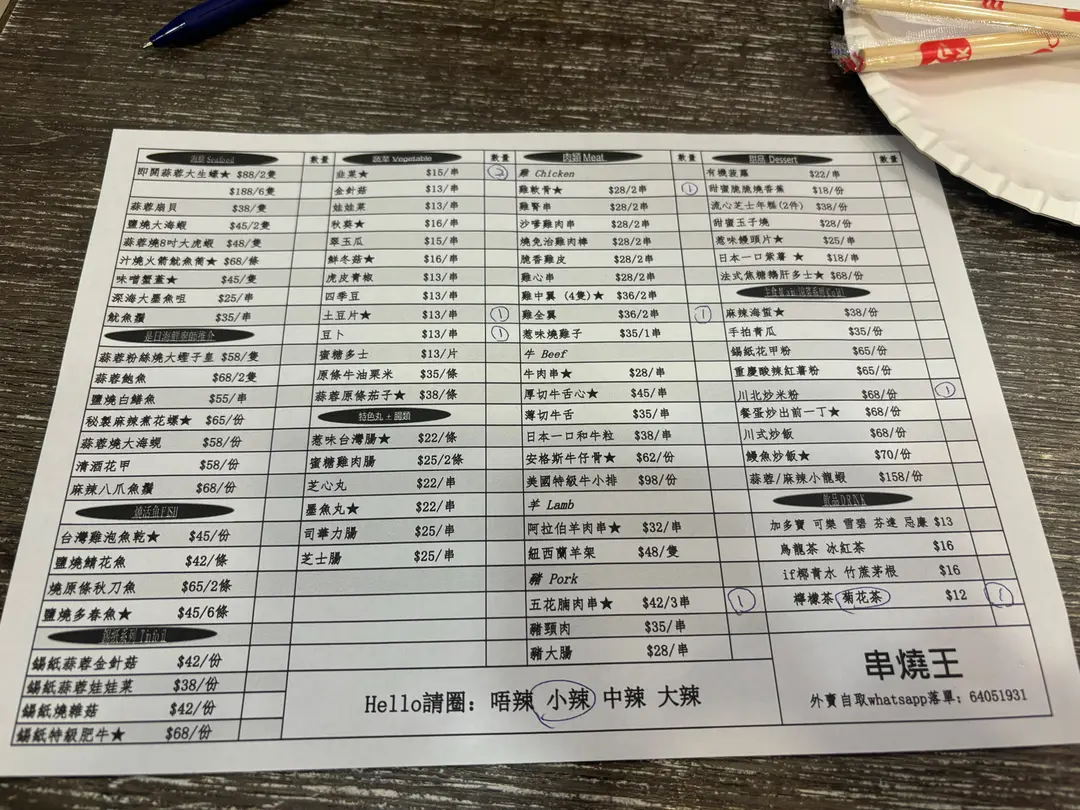 海鮮 Seafood 數量
即開蒜蓉大生蠔★ $88/2隻
$188/6隻
蒜蓉扇貝 $38/隻
鹽燒大海蝦 $45/2隻
蒜蓉燒8吋大虎蝦 $48/隻
汁燒火箭魷魚筒★ $68/條
味噌蟹蓋★ $45/隻
深海大墨魚咀 $25/串
魷魚鬚 $35/串
是日海鮮廚師推介
蒜蓉粉絲燒大蟶子皇 $58/隻
蒜蓉鮑魚 $68/2隻
鹽燒白鱔魚 $55/串
秘製麻辣煮花螺★ $65/份
蒜蓉燒大海蜆 $58/份
清酒花甲 $58/份
麻辣八爪魚鬚 $68/份
燒活魚FISH
台灣雞泡魚乾★ $45/份
鹽燒鯖花魚 $42/條
燒原條秋刀魚 $65/2條
鹽燒多春魚★ $45/6條
錫紙蒜蓉金針菇 $42/份
錫紙蒜蓉娃娃菜 $38/份
錫紙燒雜菇 $42/份
錫紙特級肥牛★ $68/份
蔬菜 Vegetable 數量
韭菜★ $15/串 2
金針菇 $13/串
娃娃菜 $13/串
秋葵★ $16/串
翠玉瓜 $15/串
鮮冬菇★ $16/串
虎皮青椒 $13/串
四季豆 $13/串
土豆片★ $13/串 1
豆卜 $13/串 1
蜜糖多士 $13/片
原條牛油粟米 $35/條
蒜蓉原條茄子★ $38/條
特色丸 + 腸類
惹味台灣腸★ $22/條
蜜糖雞肉腸 $25/2條
芝心丸 $22/串
墨魚丸★ $22/串
司華力腸 $25/串
芝士腸 $25/串
肉類 Meat 數量
雞 Chicken
雞軟骨★ $28/2串 1
雞腎串 $28/2串
沙嗲雞肉串 $28/2串
燒免治雞肉棒 $28/2串
脆香雞皮 $28/2串
雞心串 $28/2串
雞中翼 (4隻)★ $36/2串
雞全翼 $36/2串 1
惹味燒雞子 $35/1串
牛 Beef
牛肉串★ $28/串
厚切牛舌心★ $45/串
薄切牛舌 $35/串
日本一口和牛粒 $38/串
安格斯牛仔骨★ $62/份
美國特級牛小排 $98/份
羊 Lamb
阿拉伯羊肉串★ $32/串
紐西蘭羊架 $48/隻
豬 Pork
五花腩肉串★ $42/3串 1
豬頸肉 $35/串
豬大腸 $28/串
甜品 Dessert 數量
有機菠蘿 $22/串
甜蜜脆脆燒香蕉 $18/份
流心芝士年糕(2件) $38/份
甜蜜玉子燒 $28/份
惹味饅頭片★ $25/串
日本一口紫薯 ★ $18/串
法式焦糖鵝肝多士★ $68/份
麻辣海蜇★ $38/份
手拍青瓜 $35/份
錫紙花甲粉 $65/份
重慶酸辣紅薯粉 $65/份
川北炒米粉 $68/份 1
餐蛋炒出前一丁★ $68/份
川式炒飯 $68/份
鰻魚炒飯★ $70/份
蒜蓉/麻辣小龍蝦 $158/份
飲品DRINK
加多寶 可樂 雪碧 芬達 忌廉 $13
烏龍茶 冰紅茶 $16
if椰青水 竹蔗茅根 $16
檸檬茶 菊花茶 $12 1
Hello請圈: 唔辣 小辣 中辣 大辣
串燒王
外賣自取whatsapp落單: 64051931